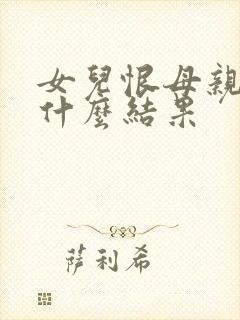 女兒恨母親
什麼結果
萨利希